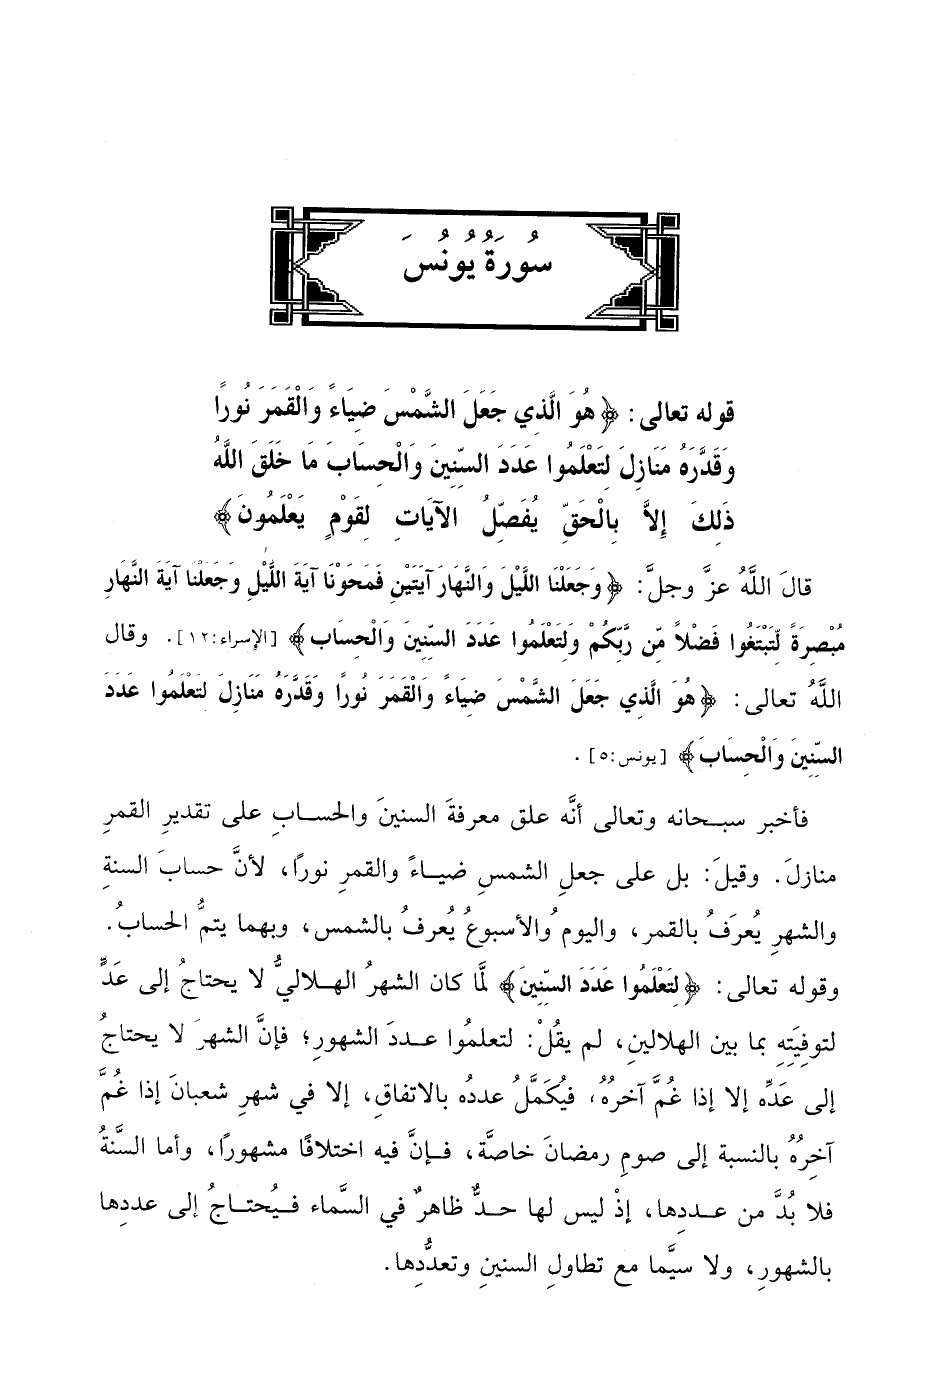 سُورَةُ يُونُسَ
قوله تعالى: ﴿هُوَ الَّذِي جَعَلَ الشَّمْسَ ضِيَاءً وَالْقَمَرَ نُورًا
وَقَدَّرَهُ مَنَازِلَ لِتَعْلَمُوا عَدَدَ السِّنِينَ وَالْحِسَابَ مَا خَلَقَ اللَّهُ
ذَلِكَ إِلاَّ بِالْحَقِّ يُفَصِّلُ الآيَاتِ لِقَوْمٍ يَعْلَمُونَ﴾
قالَ اللَّهُ عزَّ وجلَّ: ﴿وَجَعَلْنَا اللَّيْلَ وَالنَّهَارَ آيَتَيْنِ فَمَحَوْنَا آيَةَ اللَّيْلِ وَجَعَلْنَا آيَةَ النَّهَارِ
مُبْصِرَةً لِّتَبْتَغُوا فَضْلاً مِّن رَّبِّكُمْ وَلِتَعْلَمُوا عَدَدَ السِّنِينَ وَالْحِسَابَ﴾ [الإسراء:١٢]. وقال
اللَّهُ تعالى: ﴿هُوَ الَّذِي جَعَلَ الشَّمْسَ ضِيَاءً وَالْقَمَرَ نُورًا وَقَدَّرَهُ مَنَازِلَ لِتَعْلَمُوا عَدَدَ
السِّنِينَ وَالْحِسَابَ﴾ [يونس:٥].
فأخبر سبحانه وتعالى أنَّه علق معرفةَ السنينَ والحسابِ على تقديرِ القمرِ
منازلَ. وقيلَ: بل على جعلِ الشمسِ ضياءً والقمرِ نورًا، لأنَّ حسابَ السنةِ
والشهرِ يُعرَفُ بالقمر، واليوم والأسبوعُ يُعرفُ بالشمس، وبهما يتمُّ الحسابُ.
وقوله تعالى: ﴿لِتَعْلَمُوا عَدَدَ السِّنِينَ﴾ لمَّا كان الشهرُ الهلاليُّ لا يحتاجُ إلى عَدٍّ
لتوفيَتِهِ بما بين الهلالينِ، لم يقُلْ: لتعلمُوا عددَ الشهورِ؛ فإنَّ الشهرَ لا يحتاجُ
إلى عَدِّه إلا إذا غُمَّ آخرُهُ، فيُكمَّلُ عددُه بالاتفاقِ، إلا في شهرِ شعبانَ إذا غُمَّ
آخِرُهُ بالنسبة إلى صومِ رمضانَ خاصَّة، فإنَّ فيه اختلافًا مشهورًا، وأما السَّنةُ
فلا بُدَّ من عددِها، إذْ ليس لها حدٌّ ظاهرٌ في السَّماء فيُحتاجُ إلى عددِها
بالشهورِ، ولا سيَّما مع تطاولِ السنينِ وتعدُّدِها.